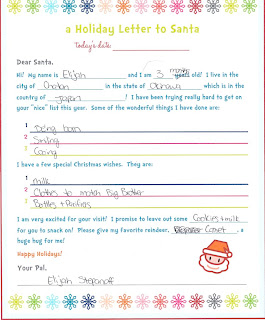 a Holiday Letter to Santa
Today's date:
Dear Santa,
Hi! My name is Elijah and I am 3 months years old! I live in the
city of Chatan in the state of Okinawa which is in the
country of Japan! I have been trying really hard to get on
your "nice" list this year. Some of the wonderful things I have done are:
1 Being born
2 Smiling
3 Cooing
I have a few special Christmas wishes. They are:
1 Milk
2 Clothes to match Big Brother
3 Bottles & Pacifiers
I am very excited for your visit! I promise to leave out some Cookies & milk
for you to snack on! Please give my favorite reindeer, Comet, a
huge hug for me!
Happy Holidays!
Your Pal,
Elijah